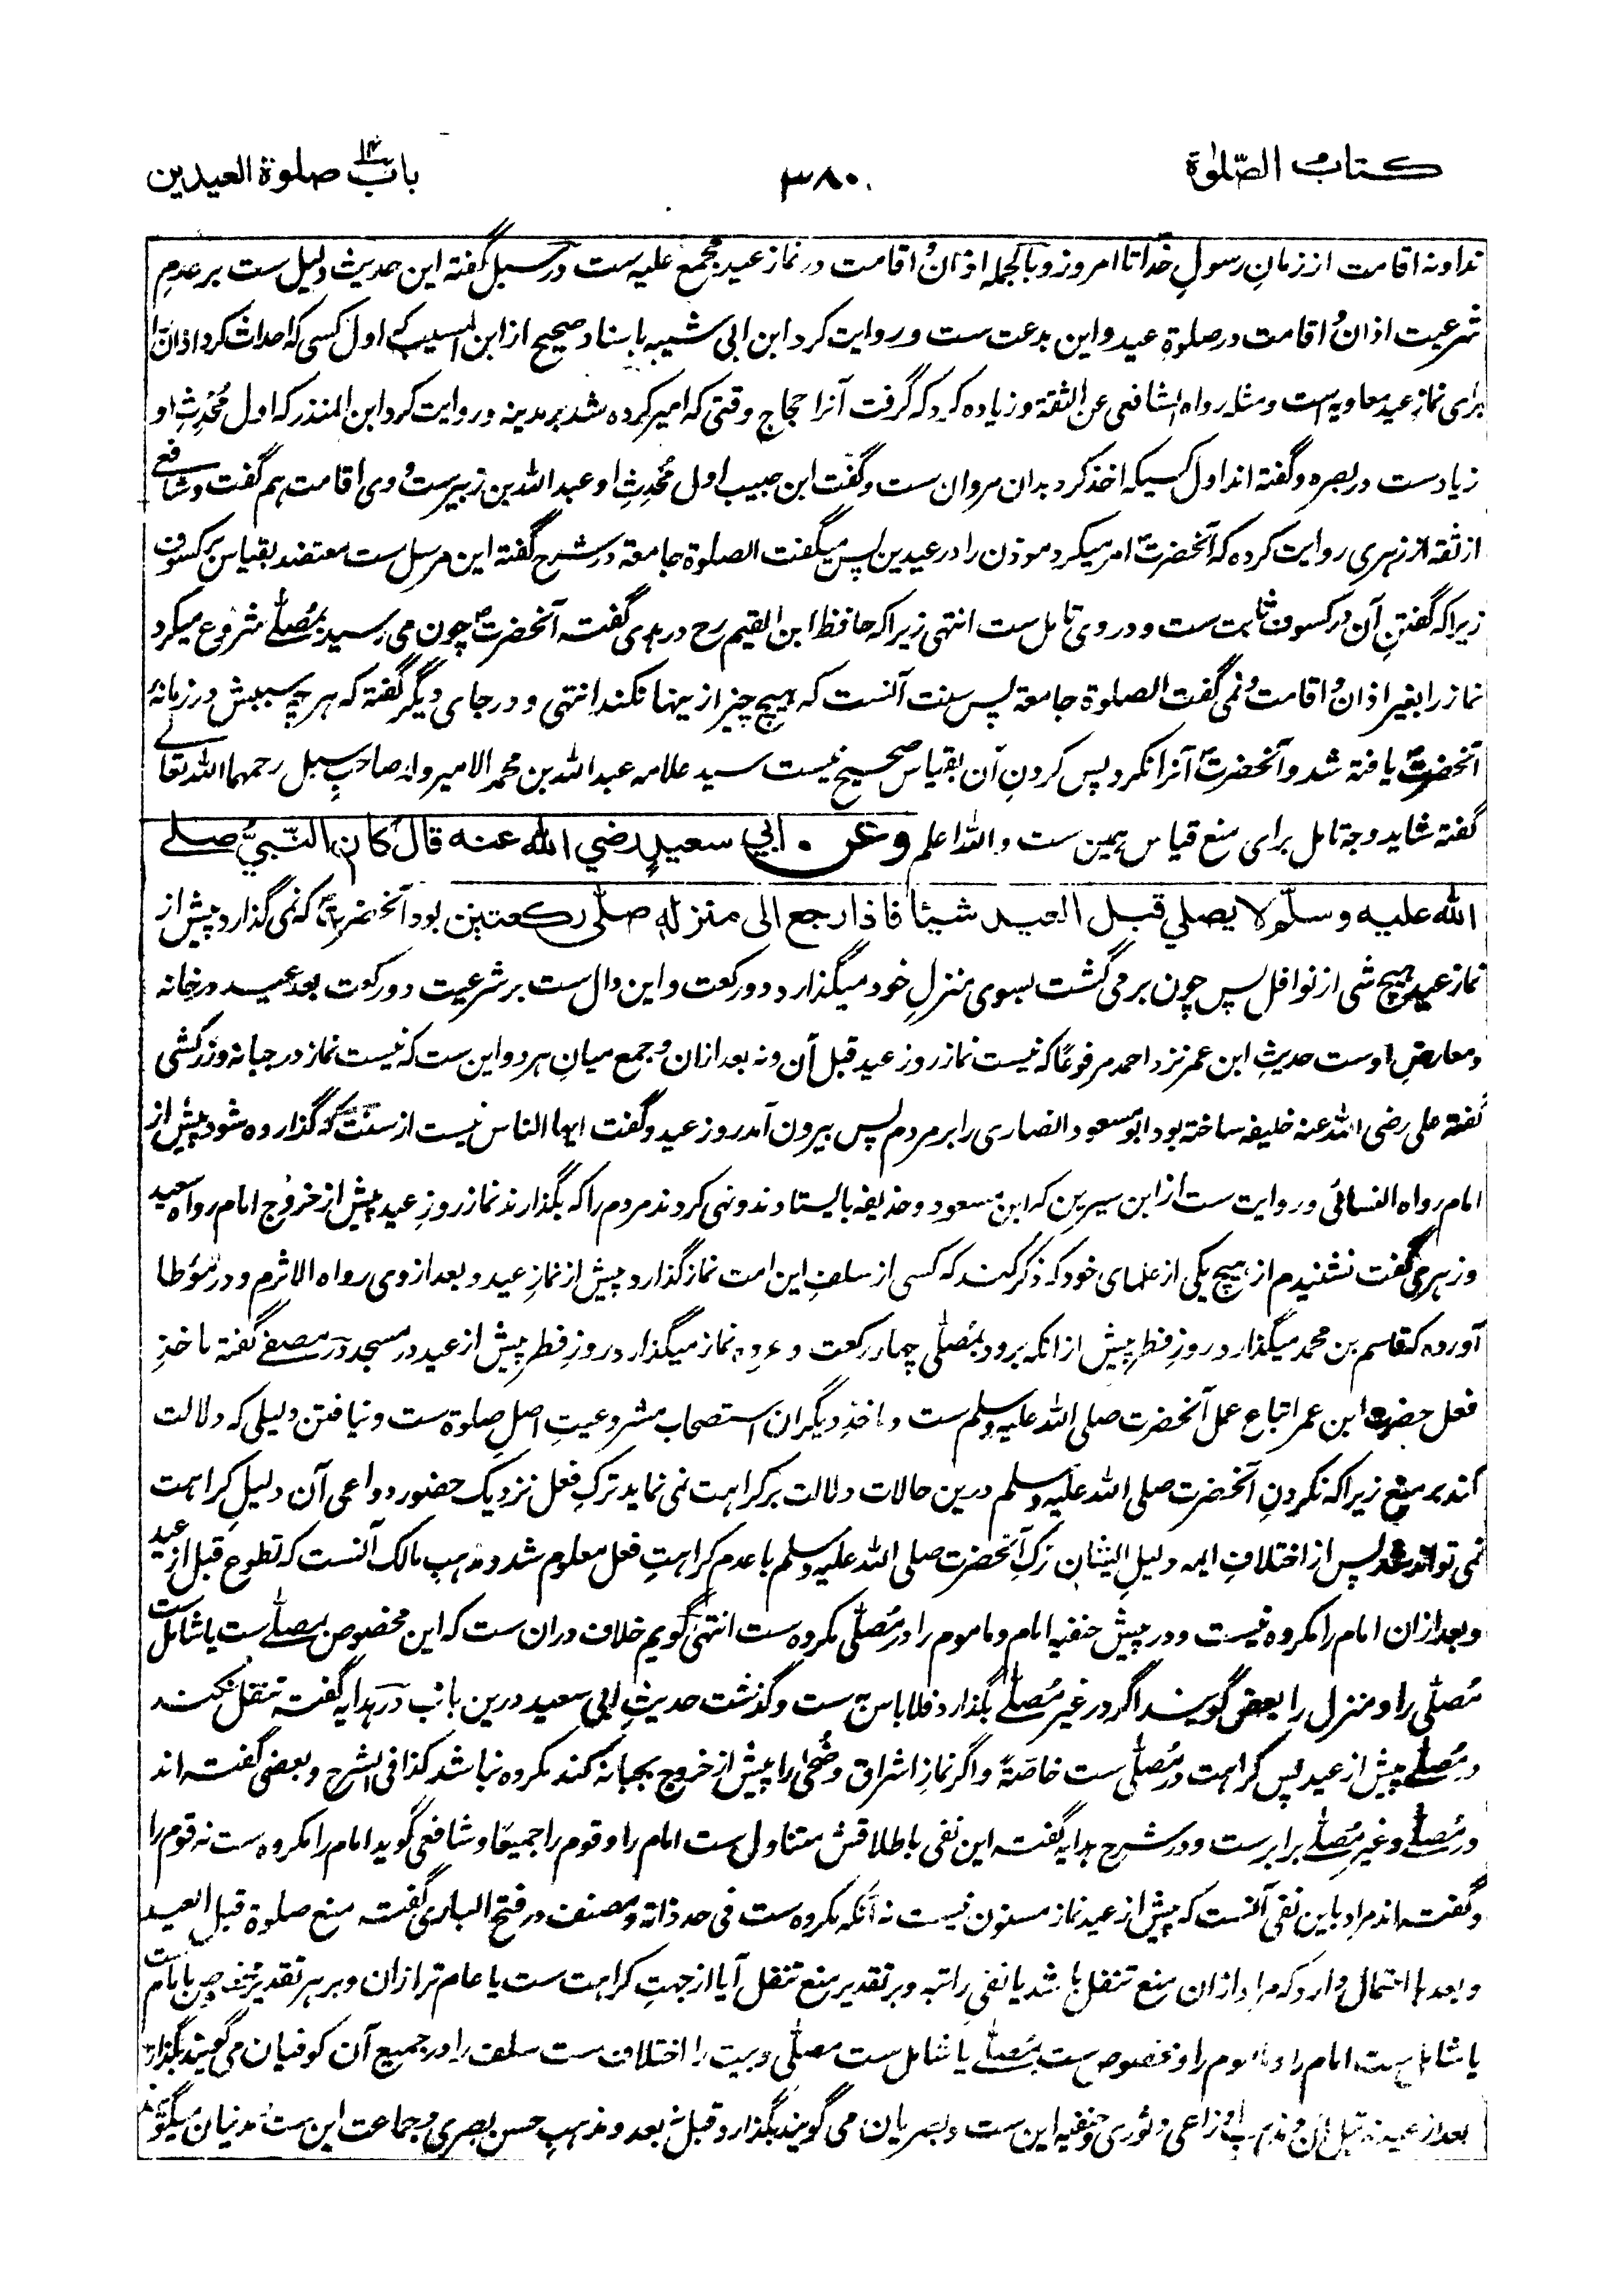 كتاب الصّلوٰة
۳۸۰
باب صلوة العيدين
ندا و نه اقامت از زمانِ رسولِ خدا تا امروز و بالجمله اذان و اقامت در نماز عید مجمع علیه ست در سبل گفته این حدیث دلیل ست بر عدمِ
شرعیت اذان و اقامت در صلوةِ عید و این بدعت ست و روایت کرد ابن ابی شیبه باسناد صحیح از ابن المسیب که اول کسی که احداث کرد اذان را
برای نمازِ عید معاویه است و مثله رواه الشافعی عن الثقة و زیاده کرد که گرفت آنرا حجاج وقتی که امیر کرده شد بر مدینه و روایت کرد ابن المنذر که اول مُحدِثِ او
زیادست در بصره و گفته اند اول کسیکه اخذ کرد بدان مروان ست و گفت ابن حبیب اول مُحدِثِ او عبد الله بن زبیرست و وی اقامت هم گفت و شافعے
از ثقه از زهری روایت کرده که آنحضرتؐ امر میکرد موذن را در عیدین پس میگفت الصلوة جامعة در شرح گفته این مرسل ست معتضد بقیاس بر کسوف
زیرا که گفتنِ آن در کسوف ثابت ست و در وی تامل ست انتهی زیرا که حافظ ابن القیم رح در هدی گفته آنحضرتؐ چون می رسید بمُصلّے شروع میکرد
نماز را بغیر اذان و اقامت و نمی گفت الصلوة جامعة پس سنت آنست که هیچ چیز از ینها نکند انتهی و در جای دیگر گفته که هر چه سببش در زمانهٔ
آنحضرتؐ یافته شد و آنحضرتؐ آنرا نکرد پس کردنِ آن بقیاس صحیح نیست سید علامه عبد الله بن محمد الامیر ولد صاحبِ سبل رحمهما الله تعالے
گفته شاید وجه تامل برای منع قیاس همین ست و الله اعلم وعن ابي سعيدٍ رضي الله عنه قال كان النّبيُّ صلے
الله عليه وسلّم لا يصلي قبل العيد شيئا فاذا رجع الى منزله صلّى ركعتين بود آنحضرتؐ که نمی گذارد پیش از
نماز عید هیچ شی از نوافل پس چون بر می گشت بسوی منزلِ خود میگذارد دو رکعت و این دال ست بر شرعیت دو رکعت بعد عید در خانه
و معارضِ اوست حدیثِ ابن عمر نزد احمد مرفوعًا که نیست نماز روز عید قبل آن و نه بعد ازان و جمع میانِ هر دو این ست که نیست نماز در جبانه و زرکشی
گفته علی رضی الله عنه خلیفه ساخته بود ابو مسعود انصاری را بر مردم پس بیرون آمد روز عید و گفت ایها الناس نیست از سنت که گذارده شود پیش از
امام رواه النسائی و روایت ست از ابن سیرین که ابن مسعود و حذیفه بایستادند و نهی کردند مردم را که بگذارند نماز روزِ عید پیش از خروج امام رواه سعید
و زهری گفت نشنیدم از هیچ یکی از علمای خود که ذکر کند که کسی از سلفِ این امت نماز گذارد پیش از نمازِ عید و بعد از وی رواه الاثرم و در مؤطا
آورده که قاسم بن محمد میگذارد روزِ فطر پیش از انکه برود بمُصلّی چهار رکعت و عروه نماز میگذارد روزِ فطر پیش از عید در مسجد در مصفے گفته ماخذِ
فعل حضرت ابن عمر اتباع عمل آنحضرت صلی الله علیه وسلم ست و ماخذِ دیگران استصحاب مشروعیتِ اصلِ صلوة ست و نیافتن دلیلی که دلالت
کند بر منع زیرا که نکردنِ آنحضرت صلی الله علیه وسلم درین حالات دلالت بر کراهت نمی نماید ترکِ فعل نزدیک حضور دواعی آن دلیلِ کراهت
نمی تواند شد پس از اختلافِ ایمه دلیلِ ایشان ترکِ آنحضرت صلی الله علیه وسلم با عدم کراهتِ فعل معلوم شد و مذهب مالک آنست که تطوع قبل از عید
و بعد ازان امام را مکروه نیست و در پیش حنفیه امام و ماموم را در مُصلّی مکروه ست انتهی گویم خلاف دران ست که این مخصوص بمصلّے ست یا شامل ست
مُصلّی را و منزل را بعض گویند اگر در غیر مُصلّے بگذارد فلا باس به ست و گذشت حدیثِ ابی سعید درین باب در هدایه گفته تنفل نکند
در مُصلّے پیش از عید پس کراهت در مُصلّی ست خاصّةً و اگر نمازِ اشراق و ضُحی را پیش از خروج بجبانه کند مکروه نباشد کذا فی الشرح و بعضی گفته اند
در مُصلّے و غیر مُصلّے برابرست و در شرح هدایه گفته این نفی باطلاقش متناول ست امام را و قوم را جمیعًا و شافعی گوید امام را مکروه ست نه قوم را
و گفته اند مراد باین نفی آنست که پیش از عید نماز مسنون نیست نه آنکه مکروه ست فی حد ذاته و مصنف در فتح الباری گفته منع صلوة قبل العید
و بعد ها احتمال دارد که مراد ازان منع تنفل باشد یا نفی راتبه و بر تقدیر منع تنفل آیا از جهتِ کراهت ست یا عام تر ازان و بر هر تقدیر مختص بامام ست
یا شامل ست امام را و ماموم را و مخصوص ست بمُصلّے یا شامل ست مصلّی و بیت را اختلاف ست سلف را در جمیع آن کوفیان می گویند بگذارد
بعد از عید نه قبل آن و مذهب اوزاعی و ثوری و حنفیه این ست و بصریان می گویند بگذارد قبل نه بعد و مذهب حسن بصری و جماعت این ست و مدنیان میگویند